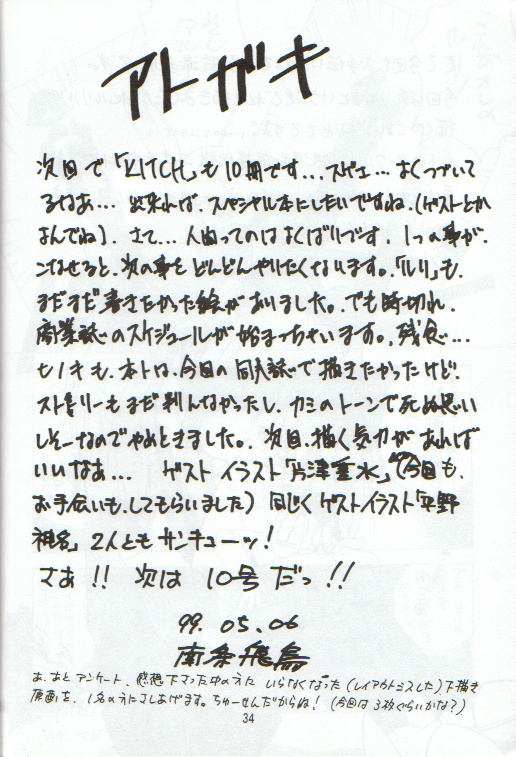 アトガキ
次回で「KITCH」も10冊です…スゲェ…よくつづいて
るなあ… 出来れば、スペシャル本にしたいですね。(ゲストとか
よんでね)。さて…人間ってのはよくばりです。1つの事が、
こなせると、次の事をどんどんやりたくなります。「ルリ」も、
まだまだ書きたかった絵がありました。でも時間切れ、
商業誌のスケジュールが始まっちゃいます。残念…
ヒノキも、本トは、今回の同人誌で描きたかったけど!
ストーリーもまだ判んなかったし、カミのトーンで死ぬ思い
しそーなのでやめときました。次回、描く気力があれば
いいなあ… ゲストイラスト「片津垂水」(今回も、
お手伝いも、してもらいました) 同じくゲストイラスト「平野
祖名」2人ともサンキューッ!
さあ!! 次は10号だっ!!
99.05.06
南条飛鳥
あ、あとアンケート、感想下さった中の方に いらなくなった(レイアウトミスした)下描き
原画を、1名の方にさしあげます。ちゅーせんだからね!(今回は3枚ぐらいかな?)
34